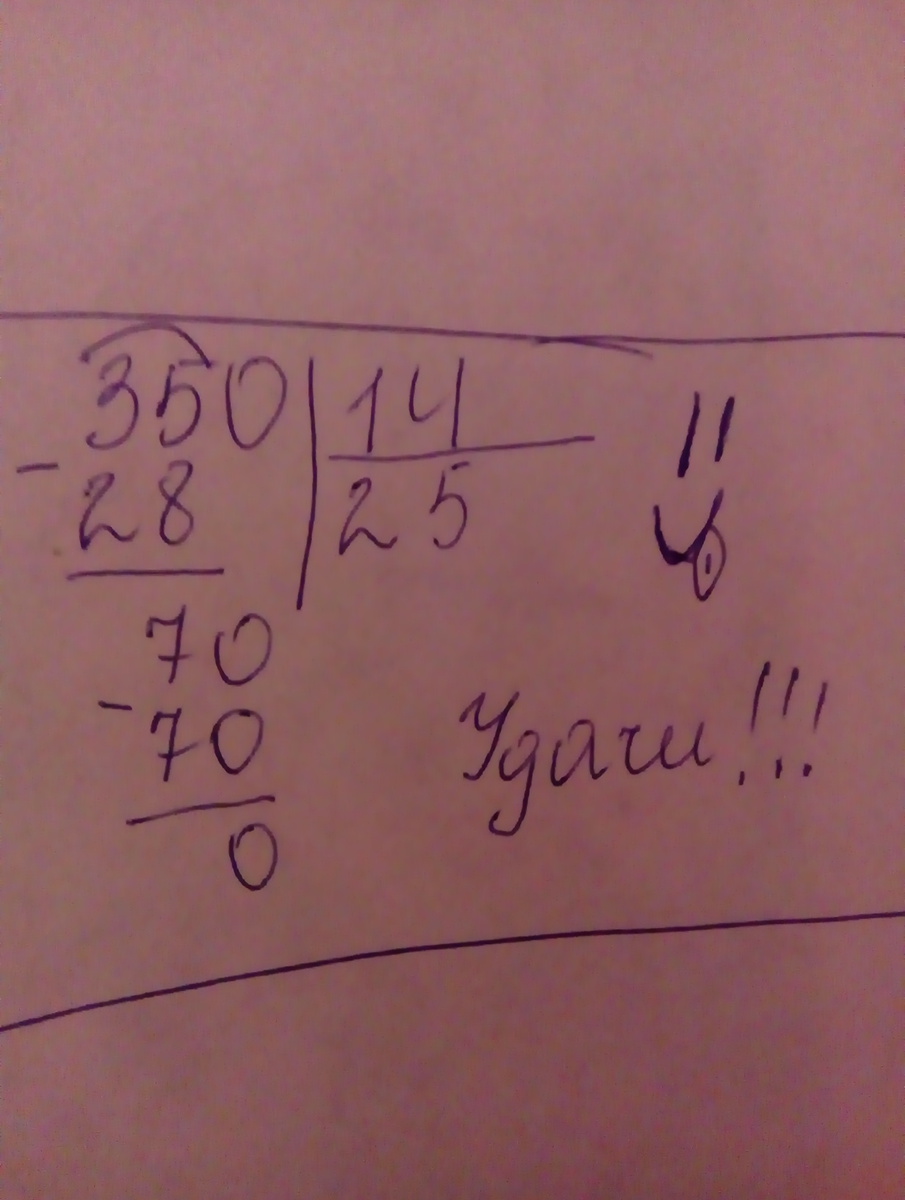 350 | 14
- 28 | 25
70
- 70
0
Удачи!!!